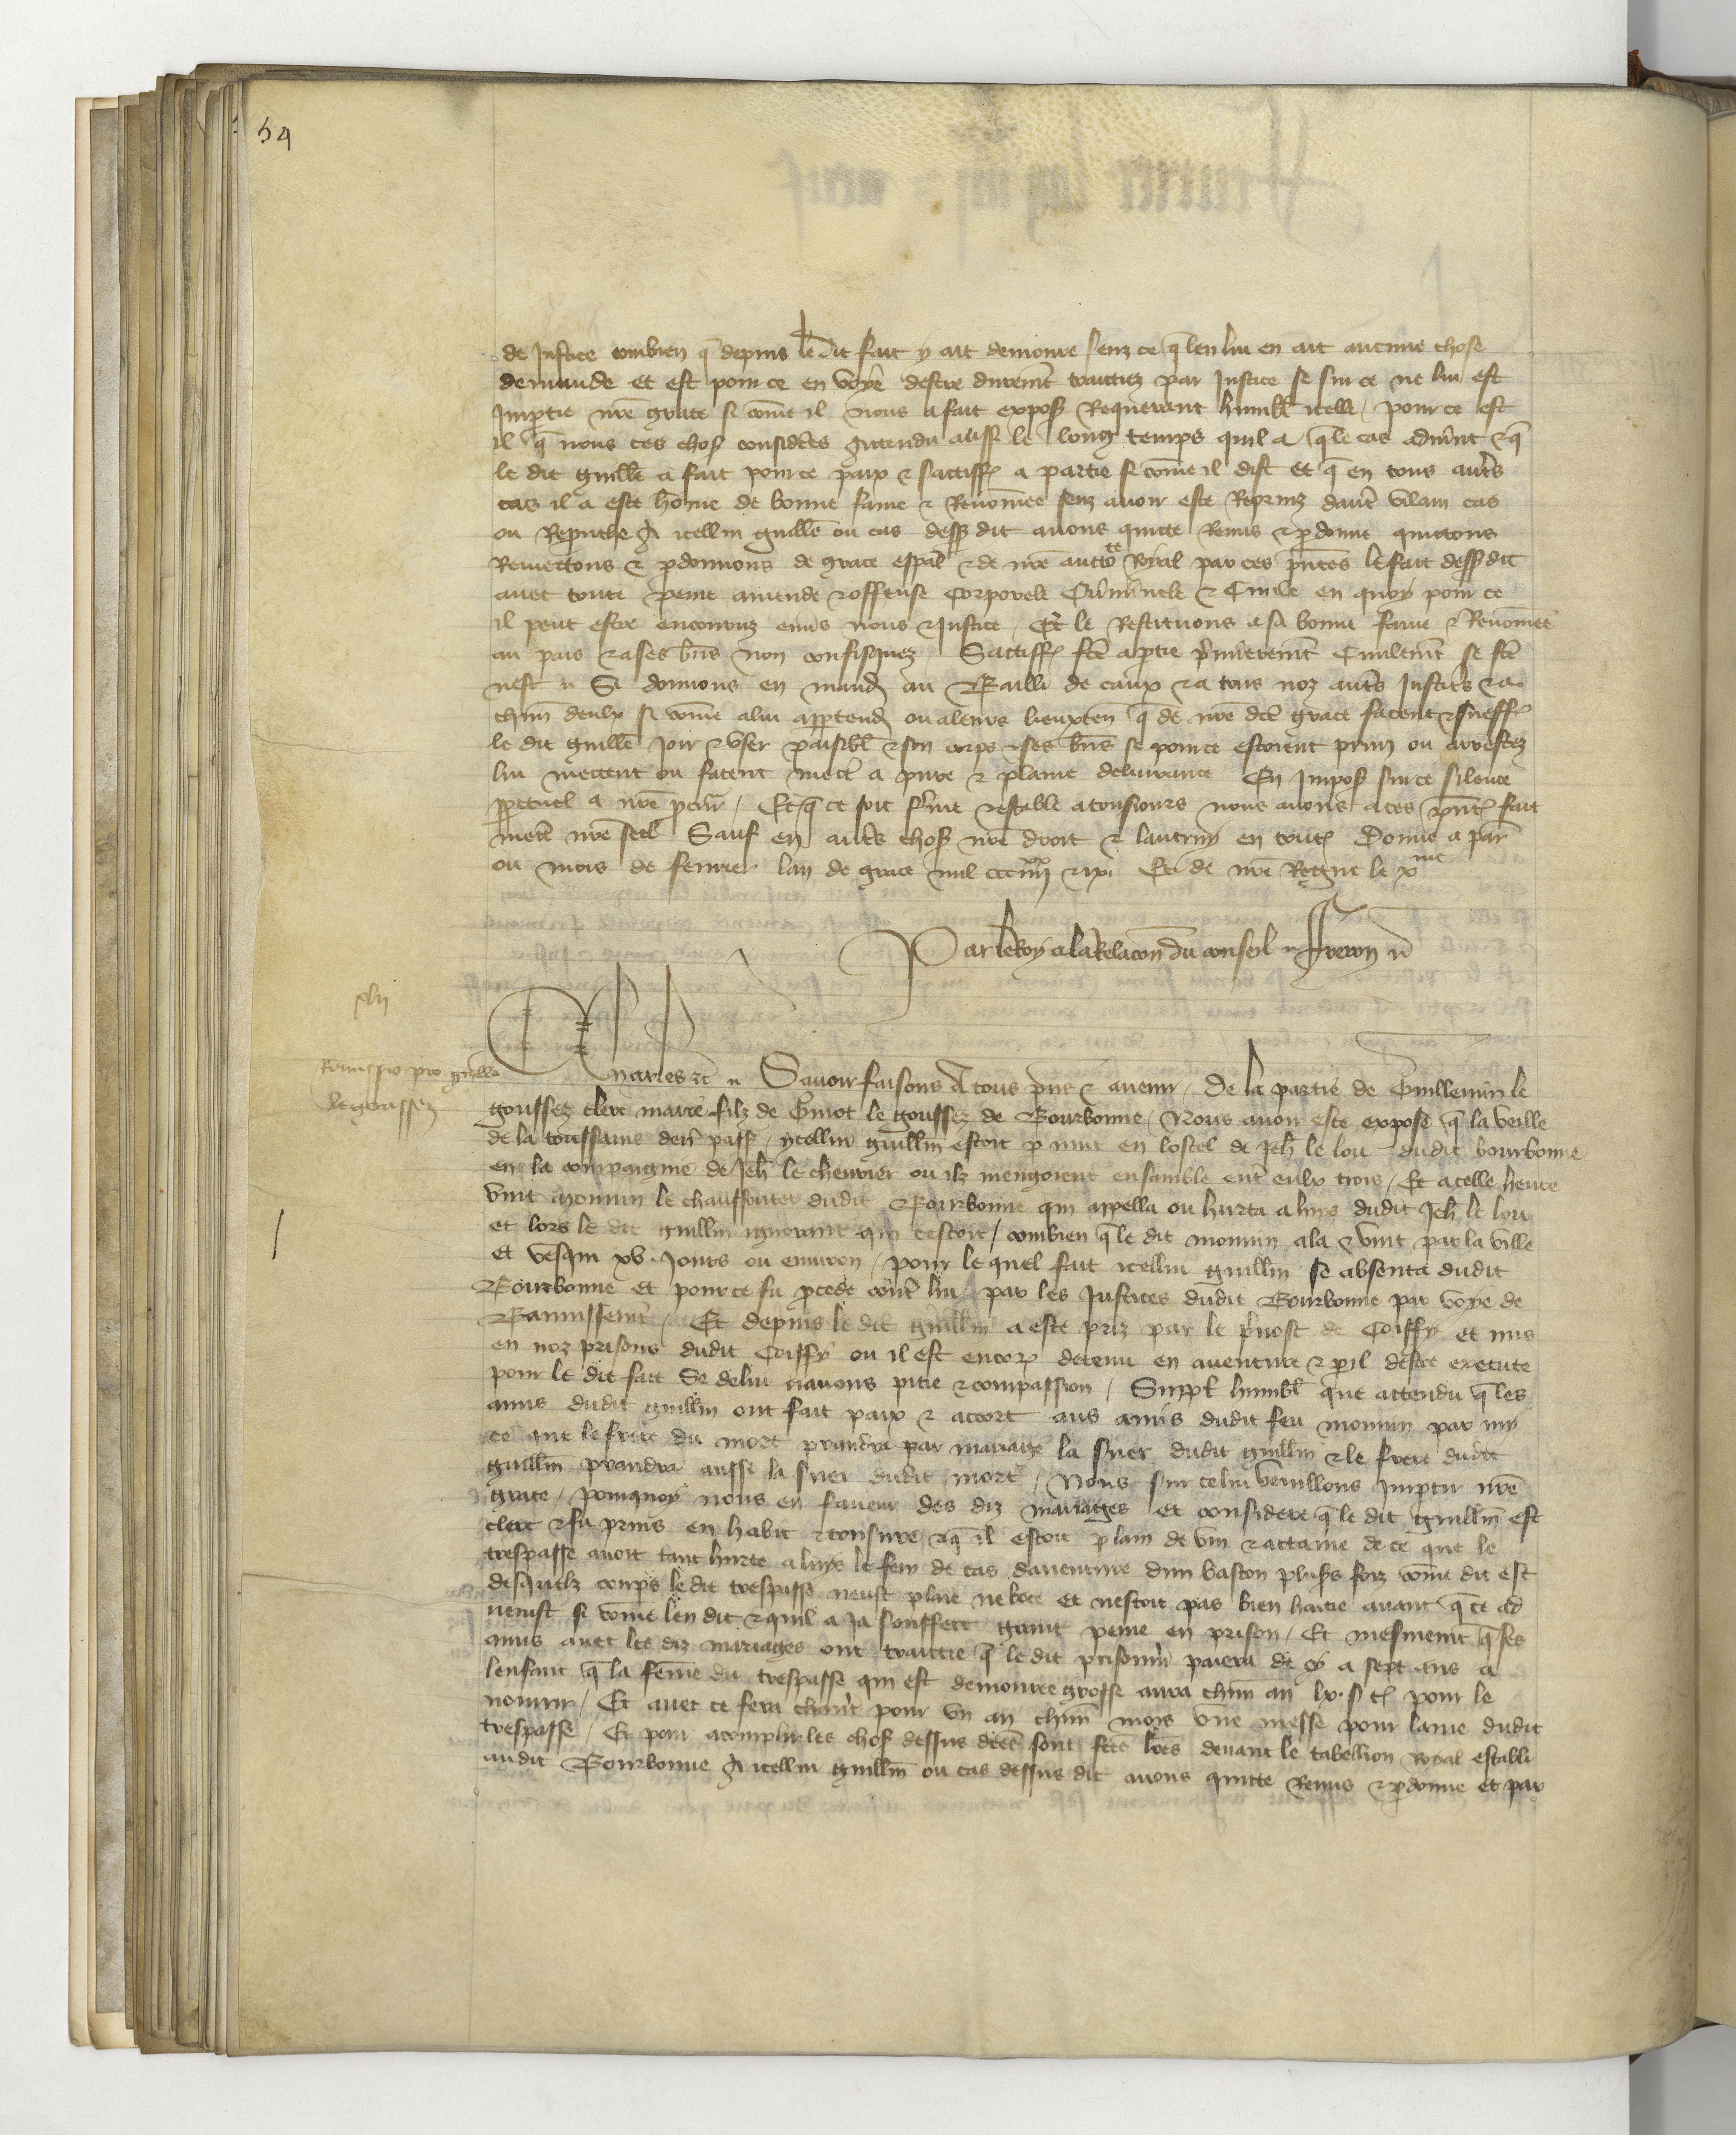 54
de Justice combien q̃ depuis le dit fait y ait demoure senz ce q̃ len lui en ait aucune chose
demande et est pour ce en voye destre durem̃t traittiez par Justice se sur ce ne lui est
Imptie nr̃e grace si com̃e il nous a fait expos̃ Requerant humbl̃ icelle / pour ce est
il q̃ nous ces chos̃ considr̃es Attendu aussi le long temps quil a q̃ le cas advint & q̃
le dit guillẽ a fait pour ce paix & sattiff̃ a partie si com̃e il dist Et q̃ en tous autr̃s
cas il a este hom̃e de bonne fame & Renom̃ee senz avoir este Reprins dautr̃ vilain cas
ou Reprouche A icellui guillẽ ou cas dess̃ dit avons quitte Remis & pdonne quittons
Remettons & pdonnons de grace esp̃al & de nr̃e auctote Royal par ces pñtes le fait dess̃ dit
avec toute peine amende & offense corporele Criminele & Civile en quoy pour ce
il peut estre encouruz envs nous & Justice / Et le Restituons a sa bonne fame & Renom̃ee
au pais & a ses bñs non confisquez / Sattiff̃ fc̃e a ptie p̃mierem̃t Civilem̃t se fc̃e
nest // Si donnons en mand̃ au Bailli de caux & a tous noz autr̃s Justic̃rs & a
chũn deulx si com̃e a lui app̃tendr̃ ou a leurs lieuxten̄ q̃ de nr̃e dc̃e grace facent & sueff̃
le dit guillẽ Joir & user paisibl̃ & son corps & ses bñs se pour ce estoient prins ou arrestez
lui mettent ou facent mectr̃ a pure & plaine delivrance En Impos̃ sur ce silence
ppetuel a nr̃e pcur̃ / Et q̃ ce soit ferme & estable a tousiours nous avons a ces pñtes fait
mettr̃ nr̃e seel Sauf en autr̃s chos̃ nr̃e droit & lautruy en toutes Donne a par̃
ou mois de fevrier lan de grace mil ccc iiijxx & ix. Et de nr̃e Regne le xme
Par le Roy a la Relacion du conseil // Freron //
xlij
Remissio pro guillo
le goussez
Charles &c // Savoir faisons A tous p̃ns & avenir / De la partie de Guillemin le
goussez clerc marie filz de Guiot le goussez de Bourbonne / Nous avoir este expose q̃ la veille
de la toussains derr̃ pass̃ / ycellui guillm̃ estoit p nuit en lostel de Jeh̃ le lou dudit bourbonne
en la compaignie de Jeh̃ le chevrier ou ilz mengoient ensamble entr̃ eulx trois / Et a celle heure
vint monnin le chauffourier dudit Bourbonne qui appella ou hurta a luis dudit Jeh̃ le lou
et lors le dit guillm̃ ignorant qui cestoit / combien q̃ le dit monnin ala & vint par la ville
et vesqui xv. Jours ou environ / pour le quel fait icellui guillm̃ se absenta dudit
Bourbonne et pour ce fu pcede contr̃ lui par les Justices dudit Bourbonne par voye de
Bannissem̃t / Et depuis le dit guillm̃ a este priz par le p̃vost de Coiffy et mis
en noz prisons dudit Coiffy ou il est encor̃ detenu en aventure & pil destre execute
pour le dit fait Se de lui navons pitie & compassion / Suppl̃ humbl̃ que attendu q̃ les
amis dudit guillm̃ ont fait paix & accort aus amis dudit feu monnin par my
ce que le frere du mort prandra par mariage la suer dudit guillm̃ & le frere dudit
guillm̃ prandra aussi la suer dudit mort / Nous sur celui veuillons Imptir nr̃e
grace / pourquoy nous en faveur des diz mariages et considere q̃ le dit guillm̃ est
clerc & fu prins en habit & tonsure & q̃ il estoit plain de vin & attaine de ce que le
trespasse avoit tant hurte a luys le feri de cas daventure dun baston plus̃s foiz com̃e dit est
desquelz coups le dit trespasse neust plaie ne boce et nestoit pas bien haitie avant q̃ ce ad
venist si com̃e len dit & quil a Ja souffert grant peine en prison / Et mesmem̃t q̃ ses
amis avec les diz mariages ont traittie q̃ le dit prisonnir̃ paiera de cy a sept ans a
lenfant q̃ la fem̃e du trespasse qui est demouree grosse aura chũn an lx. s t̃ pour le
nourrir / Et avec ce fera chant̃r pour un an chũn mois une messe pour lame dudit
trespasse / Et pour acomplir les chos̃ dessus dc̃es sont fc̃es lr̃es devant le tabellion Royal establi
audit Bourbonne A icellui guillm̃ ou cas dessus dit avons quitte Remis & pdonne et par